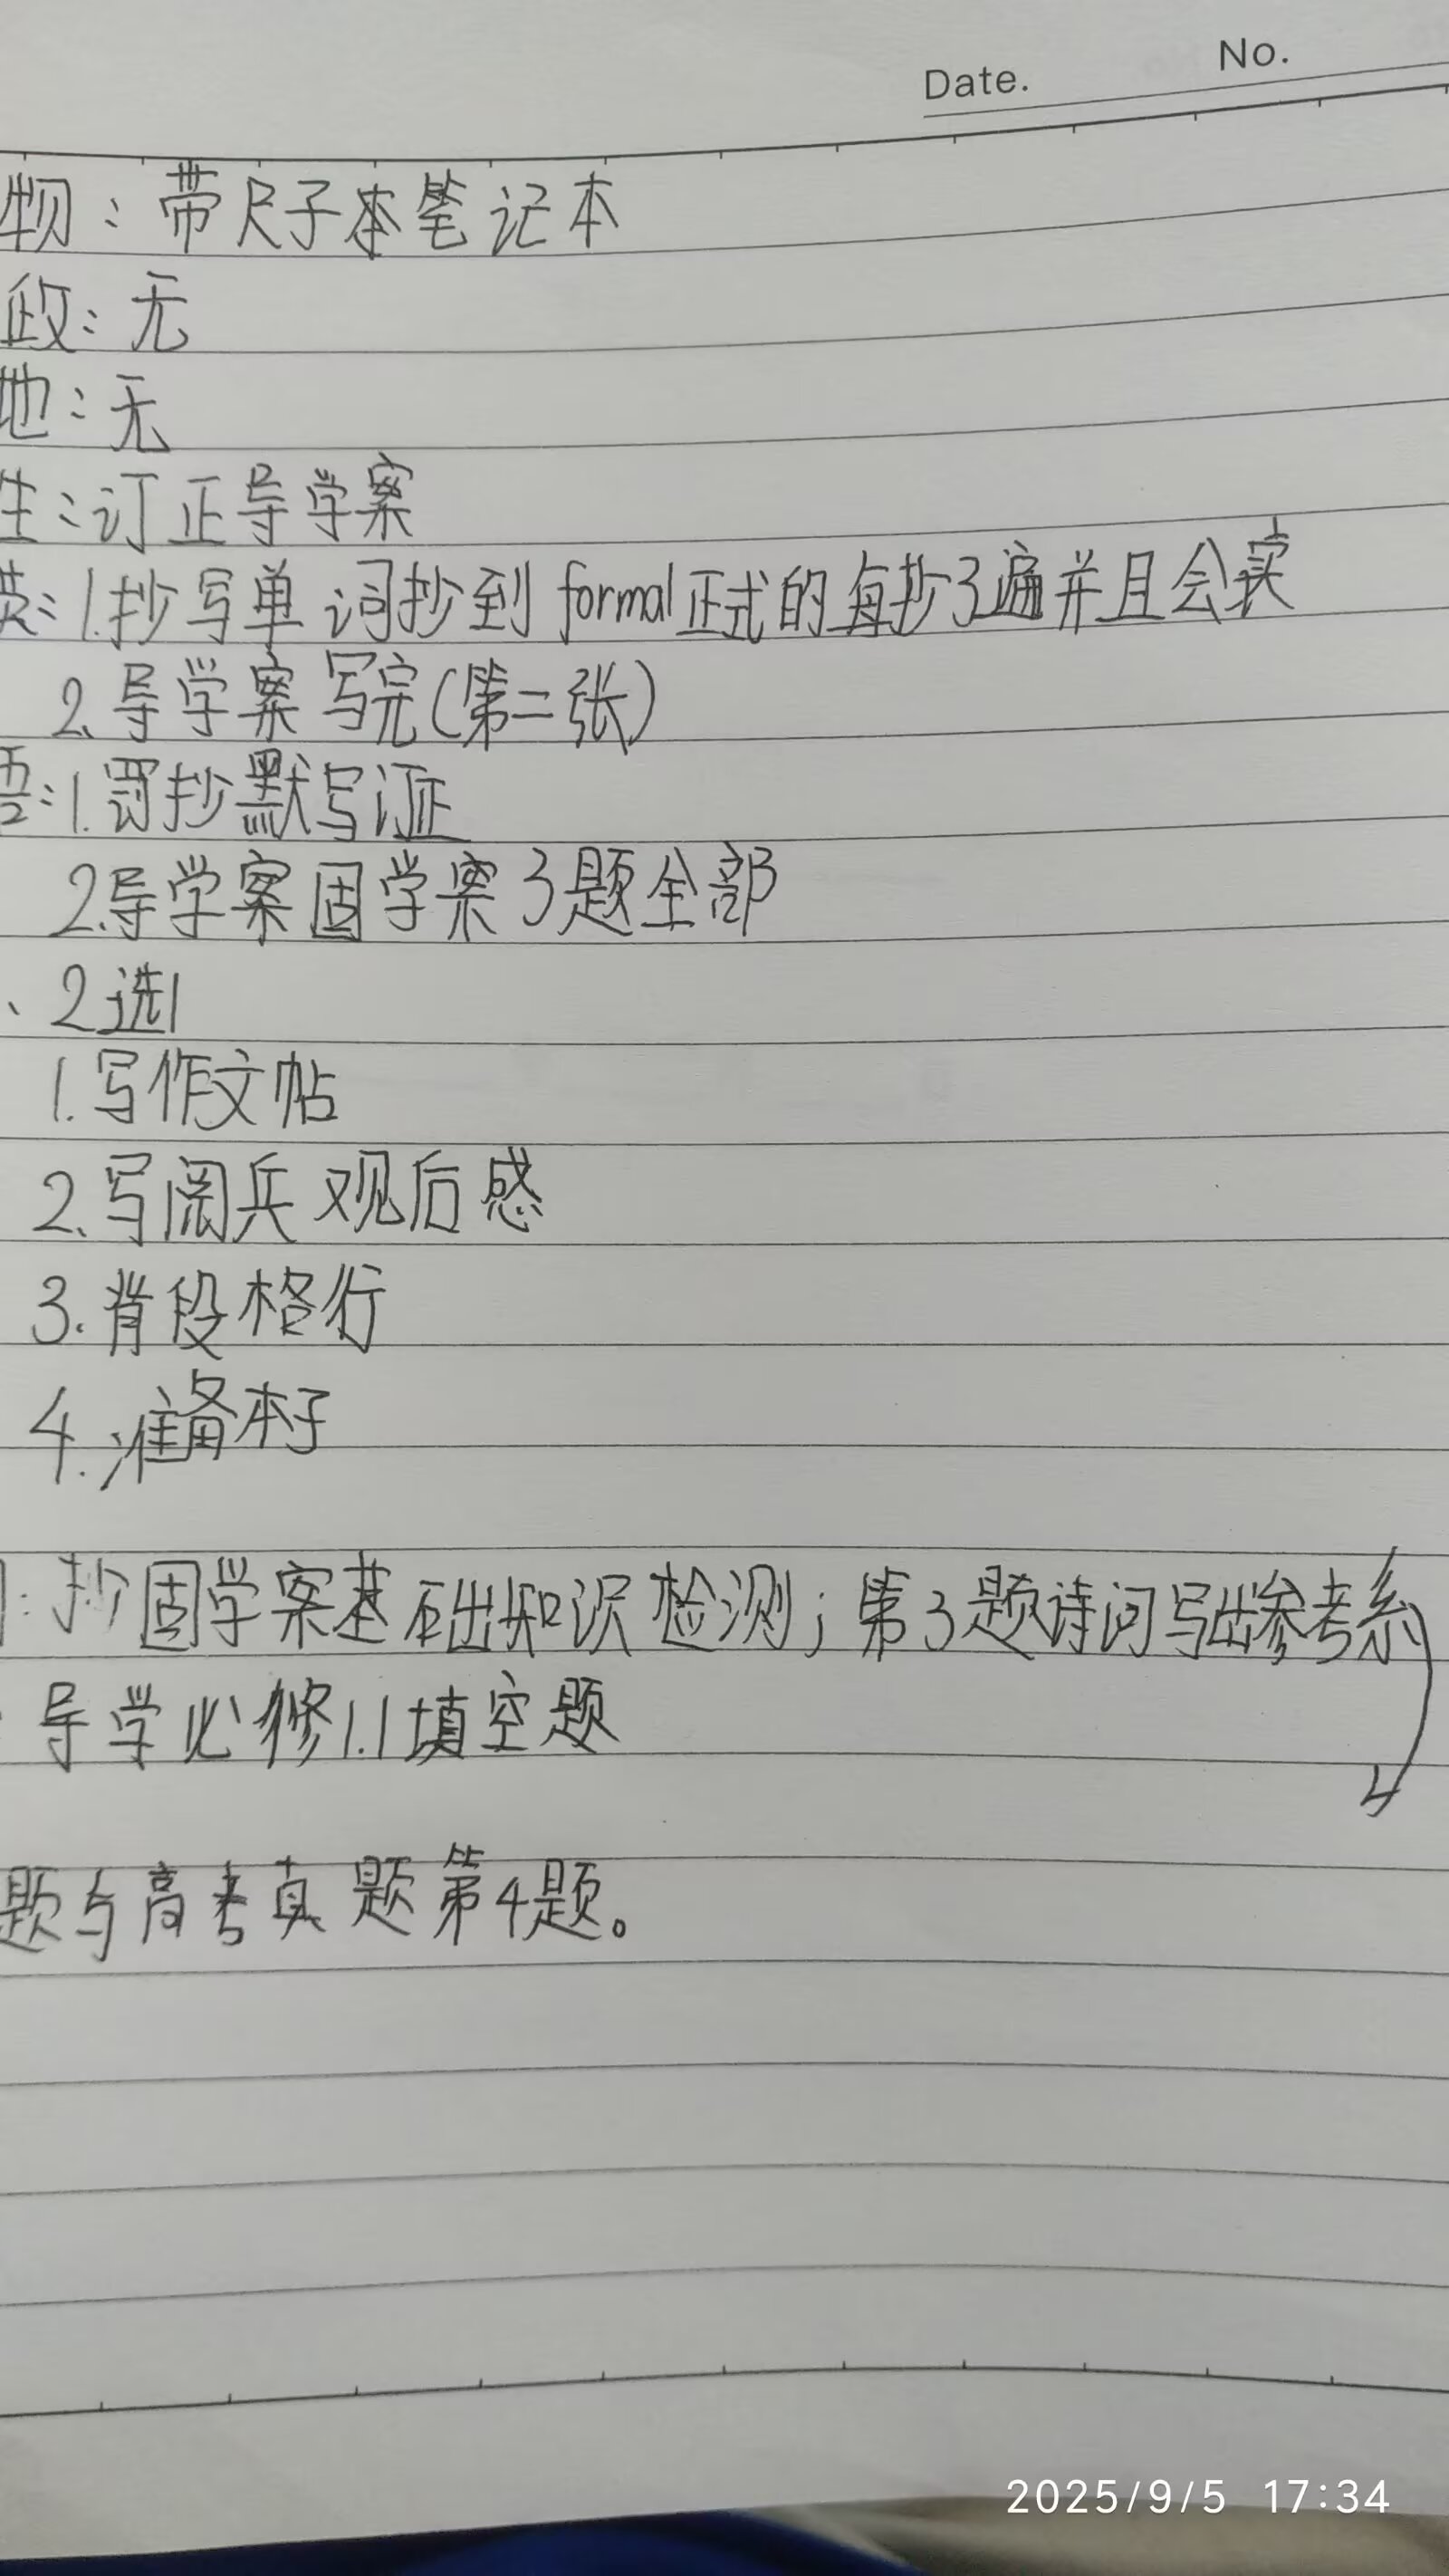 Date. No.
物：带尺子本笔记本
政：无
地：无
生：订正导学案
英：1.抄写单词抄到formal正式的每抄3遍并且会读
2.导学案写完(第二张)
语：1.罚抄默写订正
2.导学案固学案3题全部
、2选1
1.写作文帖
2.写阅兵观后感
3.背段格行
4.准备本子
：抄固学案基础知识检测；第3题诗词写出参考系
导学必修1.1填空题
题与高考真题第4题。
2025/9/5 17:34